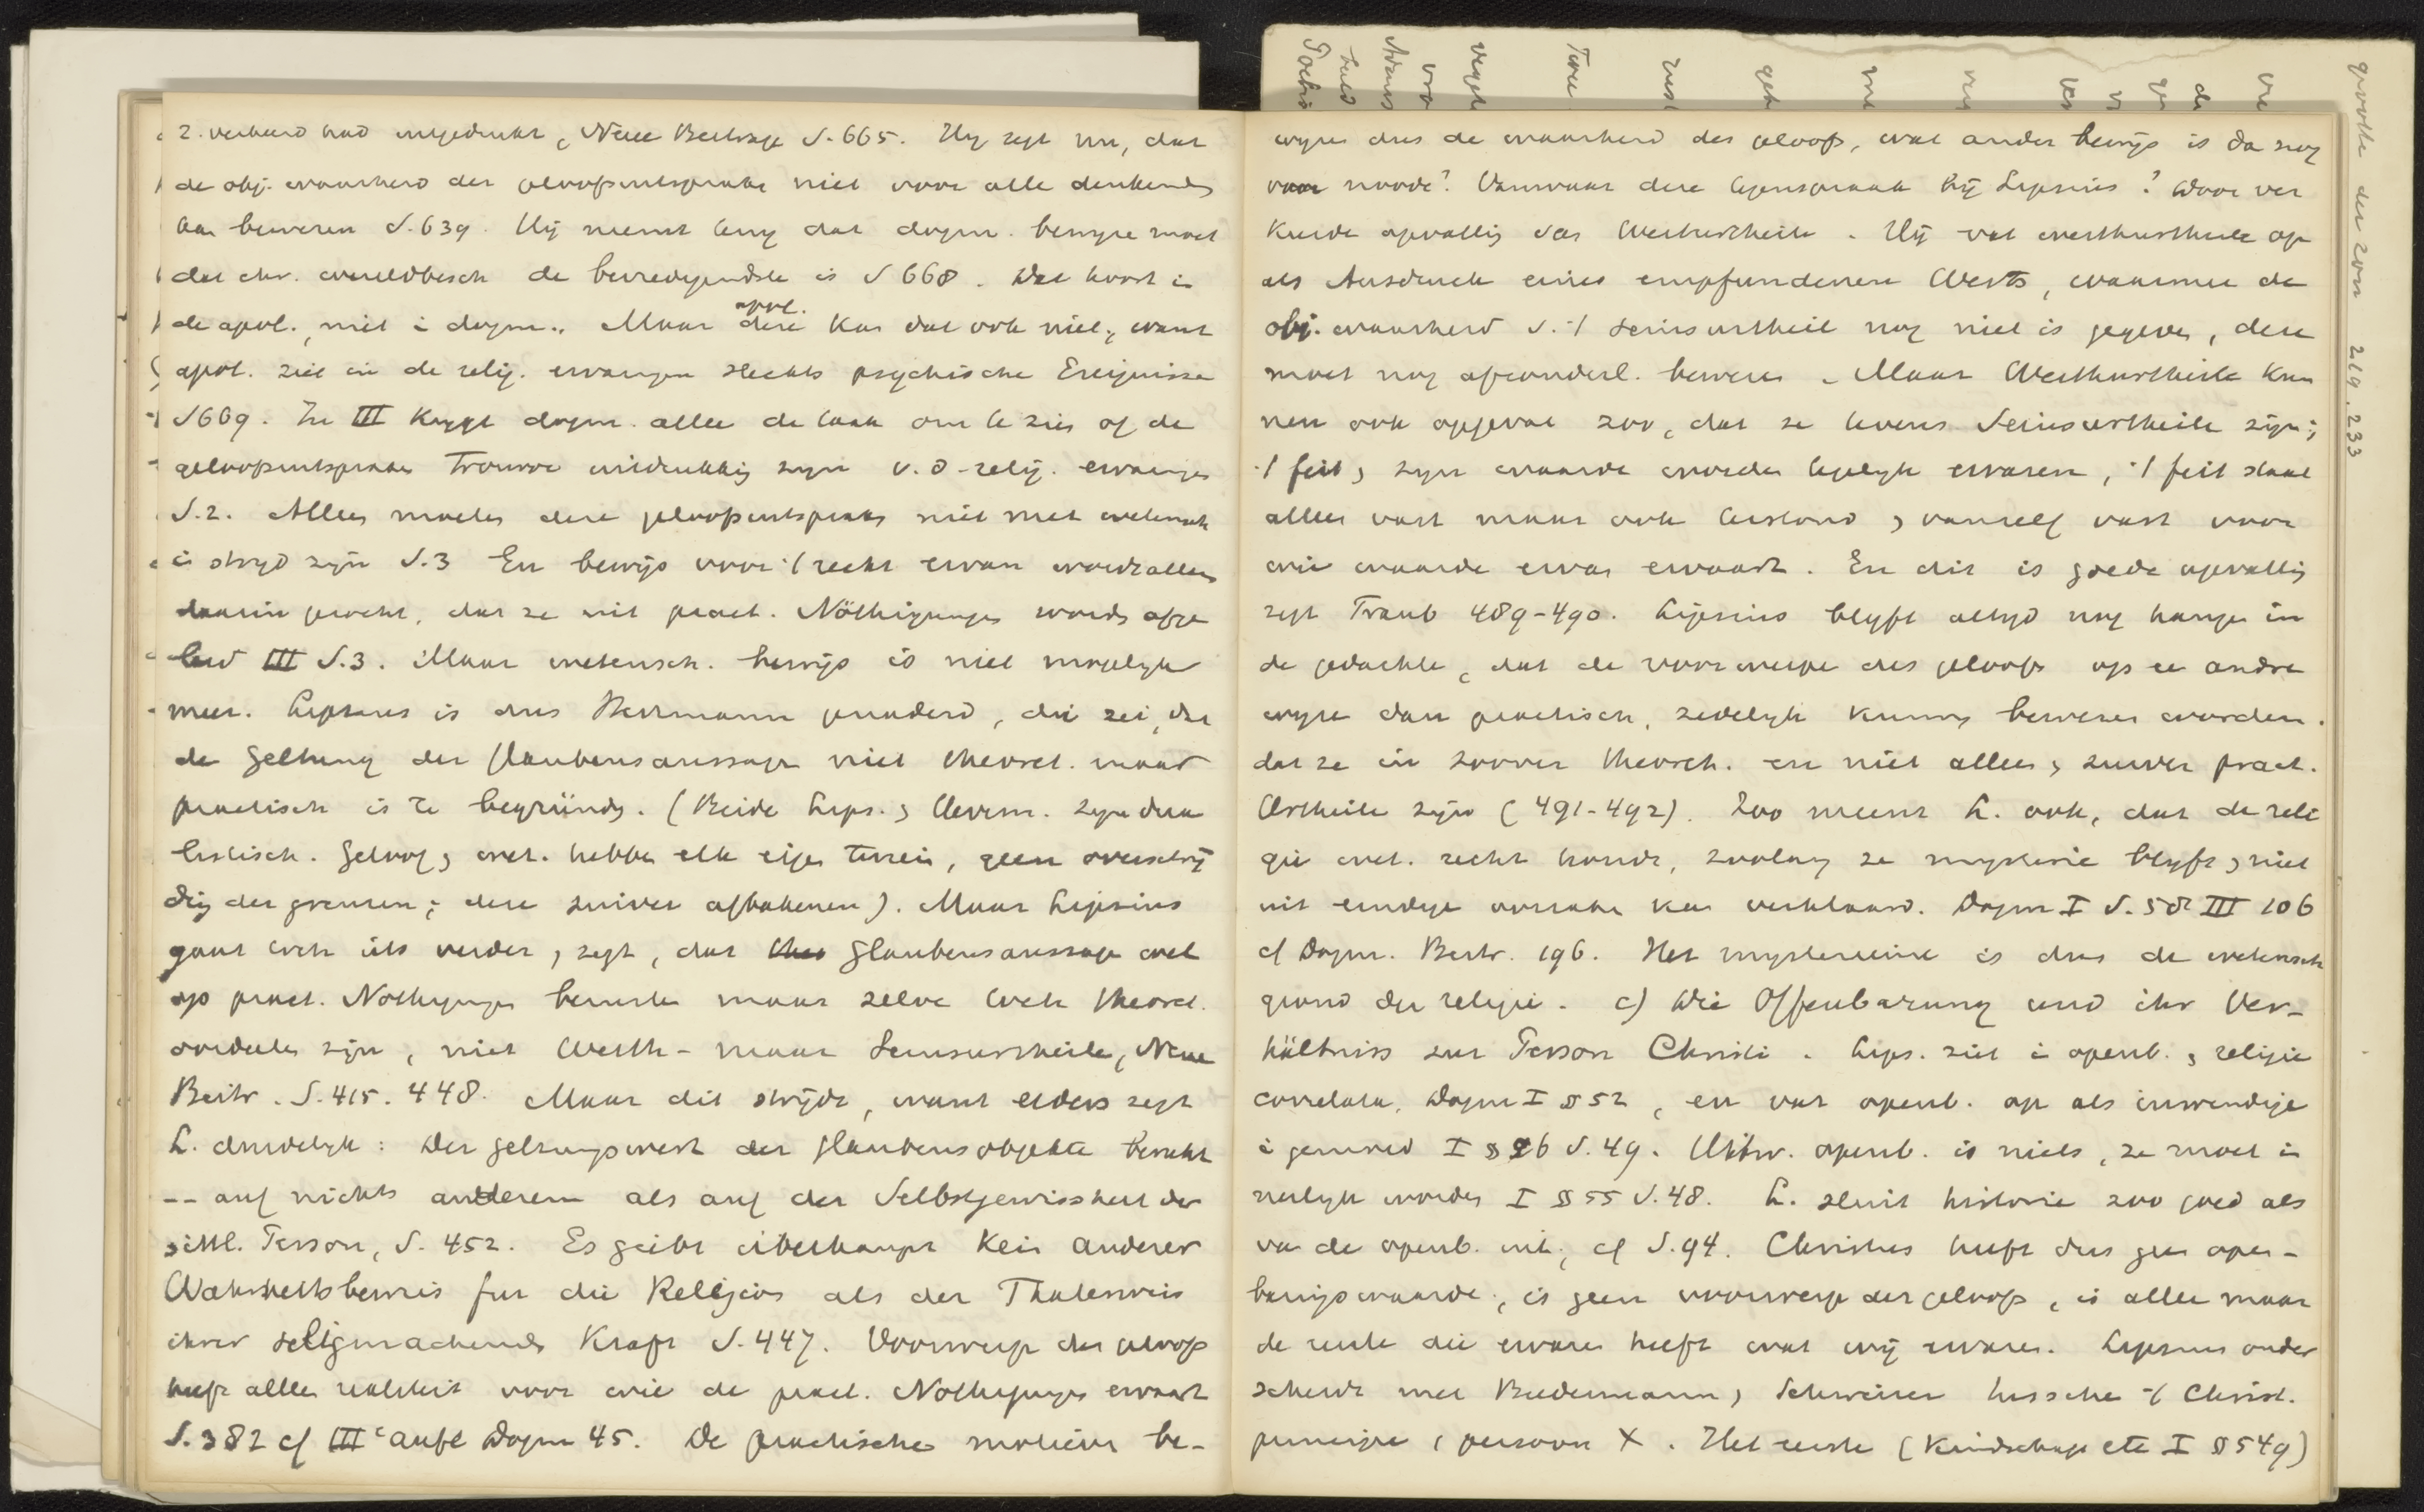 2. verband had uitgedrukt, Neue Beitrage S. 665. Hij zegt nu, dat
de obj. waarheid der geloofsuitspraken niet voor alle denkenden
kan bewezen S. 639. Hij meent dat dogm. bewijze moet
dat chr. wereldbesch de bevredigendste is S 668. Dat hoort in
de apol., niet i dogm.. Maar deze apol. kan dat ook niet, want
apol. ziet in de relig. ervaringen slechts psychische Ereignisse
S669. In III krijgt dogm. allee de taak om te zien of de
geloofsuitspraken trouwe uitdrukking zijn v. d relig. ervaringen
S. 2. Alleen moeten deze geloofsuitspraken niet met wetensch
i strijd zijn S. 3 En bewijs voor 't recht ervan wordt alleen
daarin gezocht, dat ze uit pract. Nöthigungen worden afge
leid III S. 3. Maar wetensch. bewijs is niet mogelijk
meer. Lipsius is dus Herrmann genaderd, die zei, dat
de Geltung der Glaubensaussage niet theoret. maar
practisch is te begründen. (Beide Lips. & Herrm. zijn dua
listisch. Geloof & wet. hebben elk eigen terrein, geen overschrij
ding der grenzen; deze zuiver afbakenen). Maar Lipsius
gaat toch iets verder, zegt, dat Glaubensaussage wel
op pract. Nöthigungen berusten maar zelve toch theoret.
oordeelen zijn, niet Werth- maar Seinsurtheile, Neue
Beitr. S. 415. 448. Maar dit strijdt, want elders zegt
L. duidelijk: Der Geltungswert der Glaubensobjekte beruht
-- auf nichts anderem als auf der Selbstgewissheit der
sittl. Person, S. 452. Es gibt überhaupt kein anderer
Wahrheitsbeweis fur die Religion als der Thatbeweis
ihrer seligmachenden Kraft S. 447. Voorwerp des geloofs
heeft alleen realiteit voor wie de pract. Nöthigungen ervaart
S. 382 cf III e aufl Dogm 45. De practische motieven be-
wijzen dus de waarheid des geloofs, wat ander bewijs is dan nog
van noode? Vanwaar deze tegenspraak bij Lipsius? Door ver
keerde opvatting van Werthurtheile. Hij vat werthurtheile op
als Ausdruck eines empfundenen Werts, waarmee de
obj. waarheid v. 't Seinsurtheil nog niet is gegeven, deze
moet nog afzonderl. bewezen. Maar Werthurtheile kun
nen ook opgevat zoo, dat ze tevens Seinsurtheile zijn;
't feit & zijn waarde worden tegelijk ervaren, 't feit staat
alleen vast maar ook terstond & vanzelf vast voor
wie waarde ervan ervaart. En dit is goede opvatting
zegt Traub 489-490. Lipsius blijft altijd nog hangen in
de gedachte, dat de voorwerpen des geloofs op ee andre
wijze dan practisch, zedelijk kunnen bewezen worden.
dat ze in zoover theoreth. en niet alleen & zuiver pract.
Urtheile zijn (491-492). Zoo meent L. ook, dat de reli
gie wet. recht houdt, zoolang ze mysterie blijft & niet
uit eindige oorzaken kan verklaard. Dogm I S. 58 III 106
cf Dogm. Beitr. 196. Het mysterieuse is dus de wetensch
grond der religie. c) Die Offenbarung und ihr Ver-
hältniss zur Person Christi. Lips. ziet i openb. & religie
correlata, Dogm I § 52, en vat openb. op als inwendige
i gemoed I § 26 S. 49. Uitw. openb. is niets, ze moet in
nerlijk worden I § 55 S. 48. L. sluit historie zoo goed als
van de openb. uit, cf S. 94. Christus heeft dus geen open-
baringswaarde, is geen voorwerp des geloofs, is allee maar
de eerste die ervaren heeft wat wij ervaren. Lipsius onder
scheidt met Biedermann & Schweizer tusschen 't Christ.
principe & persoon X. Het eerste (Kindschap etc I § 549)
gevolle den zoon 219. 233